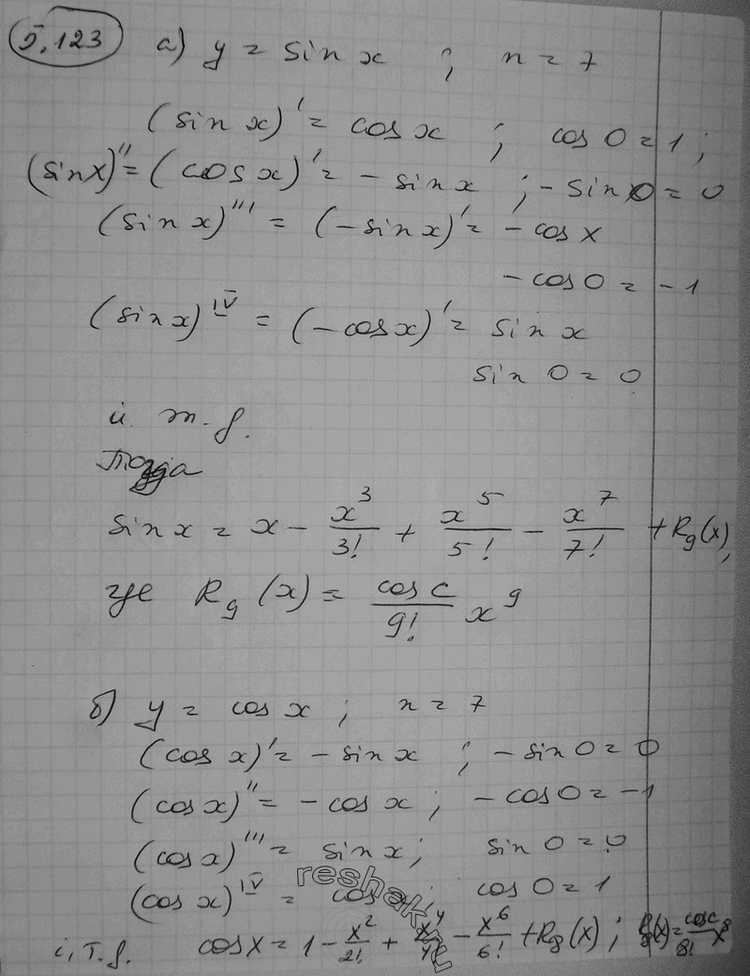 5.123 а) y = sin x ; n = 7
(sin x)' = cos x ; cos 0 = 1 ;
(sin x)'' = (cos x)' = - sin x ; - sin 0 = 0
(sin x)''' = (- sin x)' = - cos x
- cos 0 = - 1
(sin x)^IV = (- cos x)' = sin x
sin 0 = 0
и т.д.
Тогда
sin x = x - x^3/3! + x^5/5! - x^7/7! + R_9(x),
где R_9(x) = cos c/9! x^9
б) y = cos x ; n = 7
(cos x)' = - sin x ; - sin 0 = 0
(cos x)'' = - cos x ; - cos 0 = -1
(cos x)''' = sin x ; sin 0 = 0
(cos x)^IV = cos x ; cos 0 = 1
и т.д. cos x = 1 - x^2/2! + x^4/4! - x^6/6! + R_8(x) ; R_8(x) = cos c/8! x^8
reshak.ru